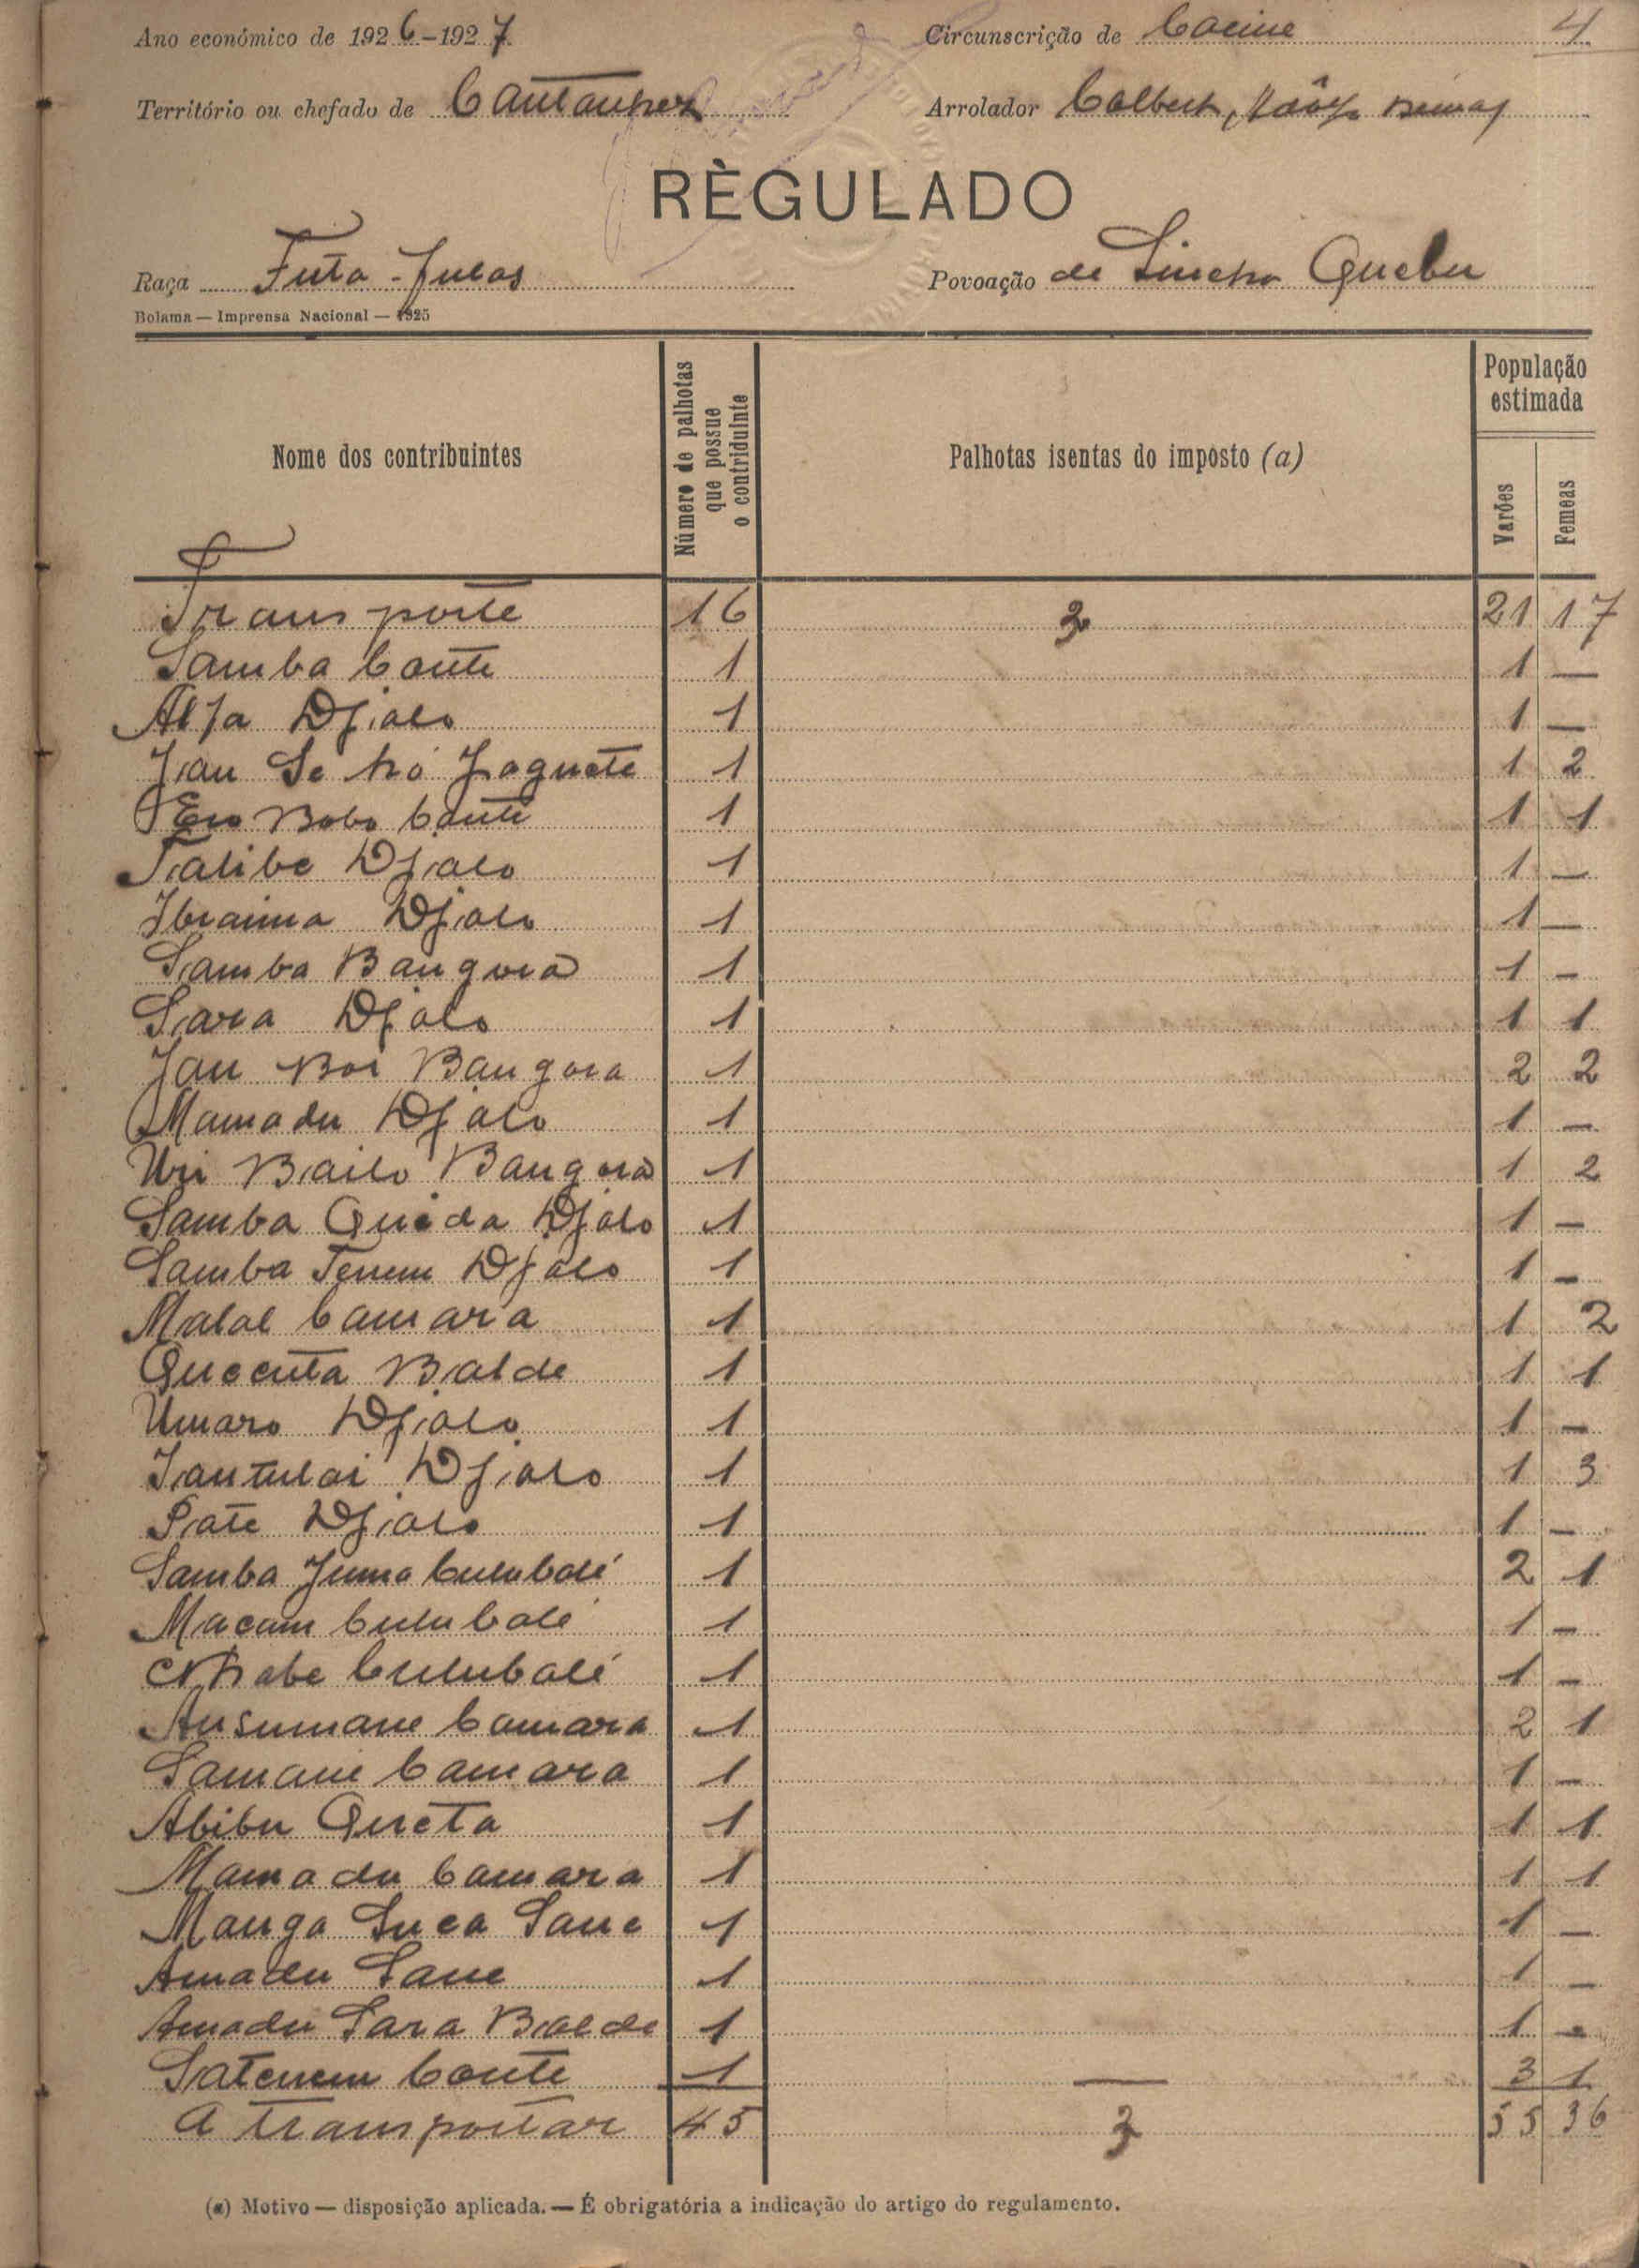 Ano económico de 1926-1927
Circunscrição de Cacine
4
Território ou chefado de Cantanhez
Arrolador Calbert,
RÈGULADO
Raça Futa-Fulas
Povoação de Sincho Quebu
Bolama — Imprensa Nacional — 1925
Nome dos contribuintes
Número de palhotas que possue o contriduinte
Palhotas isentas do imposto (a)
População estimada
Varões
Femeas
Transporte 16 3 21 17
Samba Conte 1 1 —
Alfa Djalo 1 1 —
Jau Se 1 1 2
Bobo Conte 1 1 1
Talibe Djalo 1 1 —
Ibraima Djalo 1 1 —
Samba Bangora 1 1 —
Sara Djalo 1 1 1
Jau Boi Bangora 1 2 2
Mamadu Djalo 1 1 —
Uri Bailo Bangora 1 1 2
Samba Queda Djalo 1 1 —
Samba Tenem Djalo 1 1 —
Malal Camara 1 1 2
Quecuta Balde 1 1 1
Umaro Djalo 1 1 —
Djalo 1 1 3
Pate Djalo 1 1 —
Samba Juma Culubalé 1 2 1
Macam Culubale 1 1 —
Culubalé 1 1 —
Ansumane Camara 1 2 1
Samane Camara 1 1 —
Abibu Queta 1 1 1
Mamadu Camara 1 1 1
Manga Suca Sane 1 1 —
Amadu Sane 1 1 —
Amadu Sara Balde 1 1 —
Satenem Conte 1 — 3 1
A transportar 45 3 55 36
(a) Motivo — disposição aplicada. — É obrigatória a indicação do artigo do regulamento.